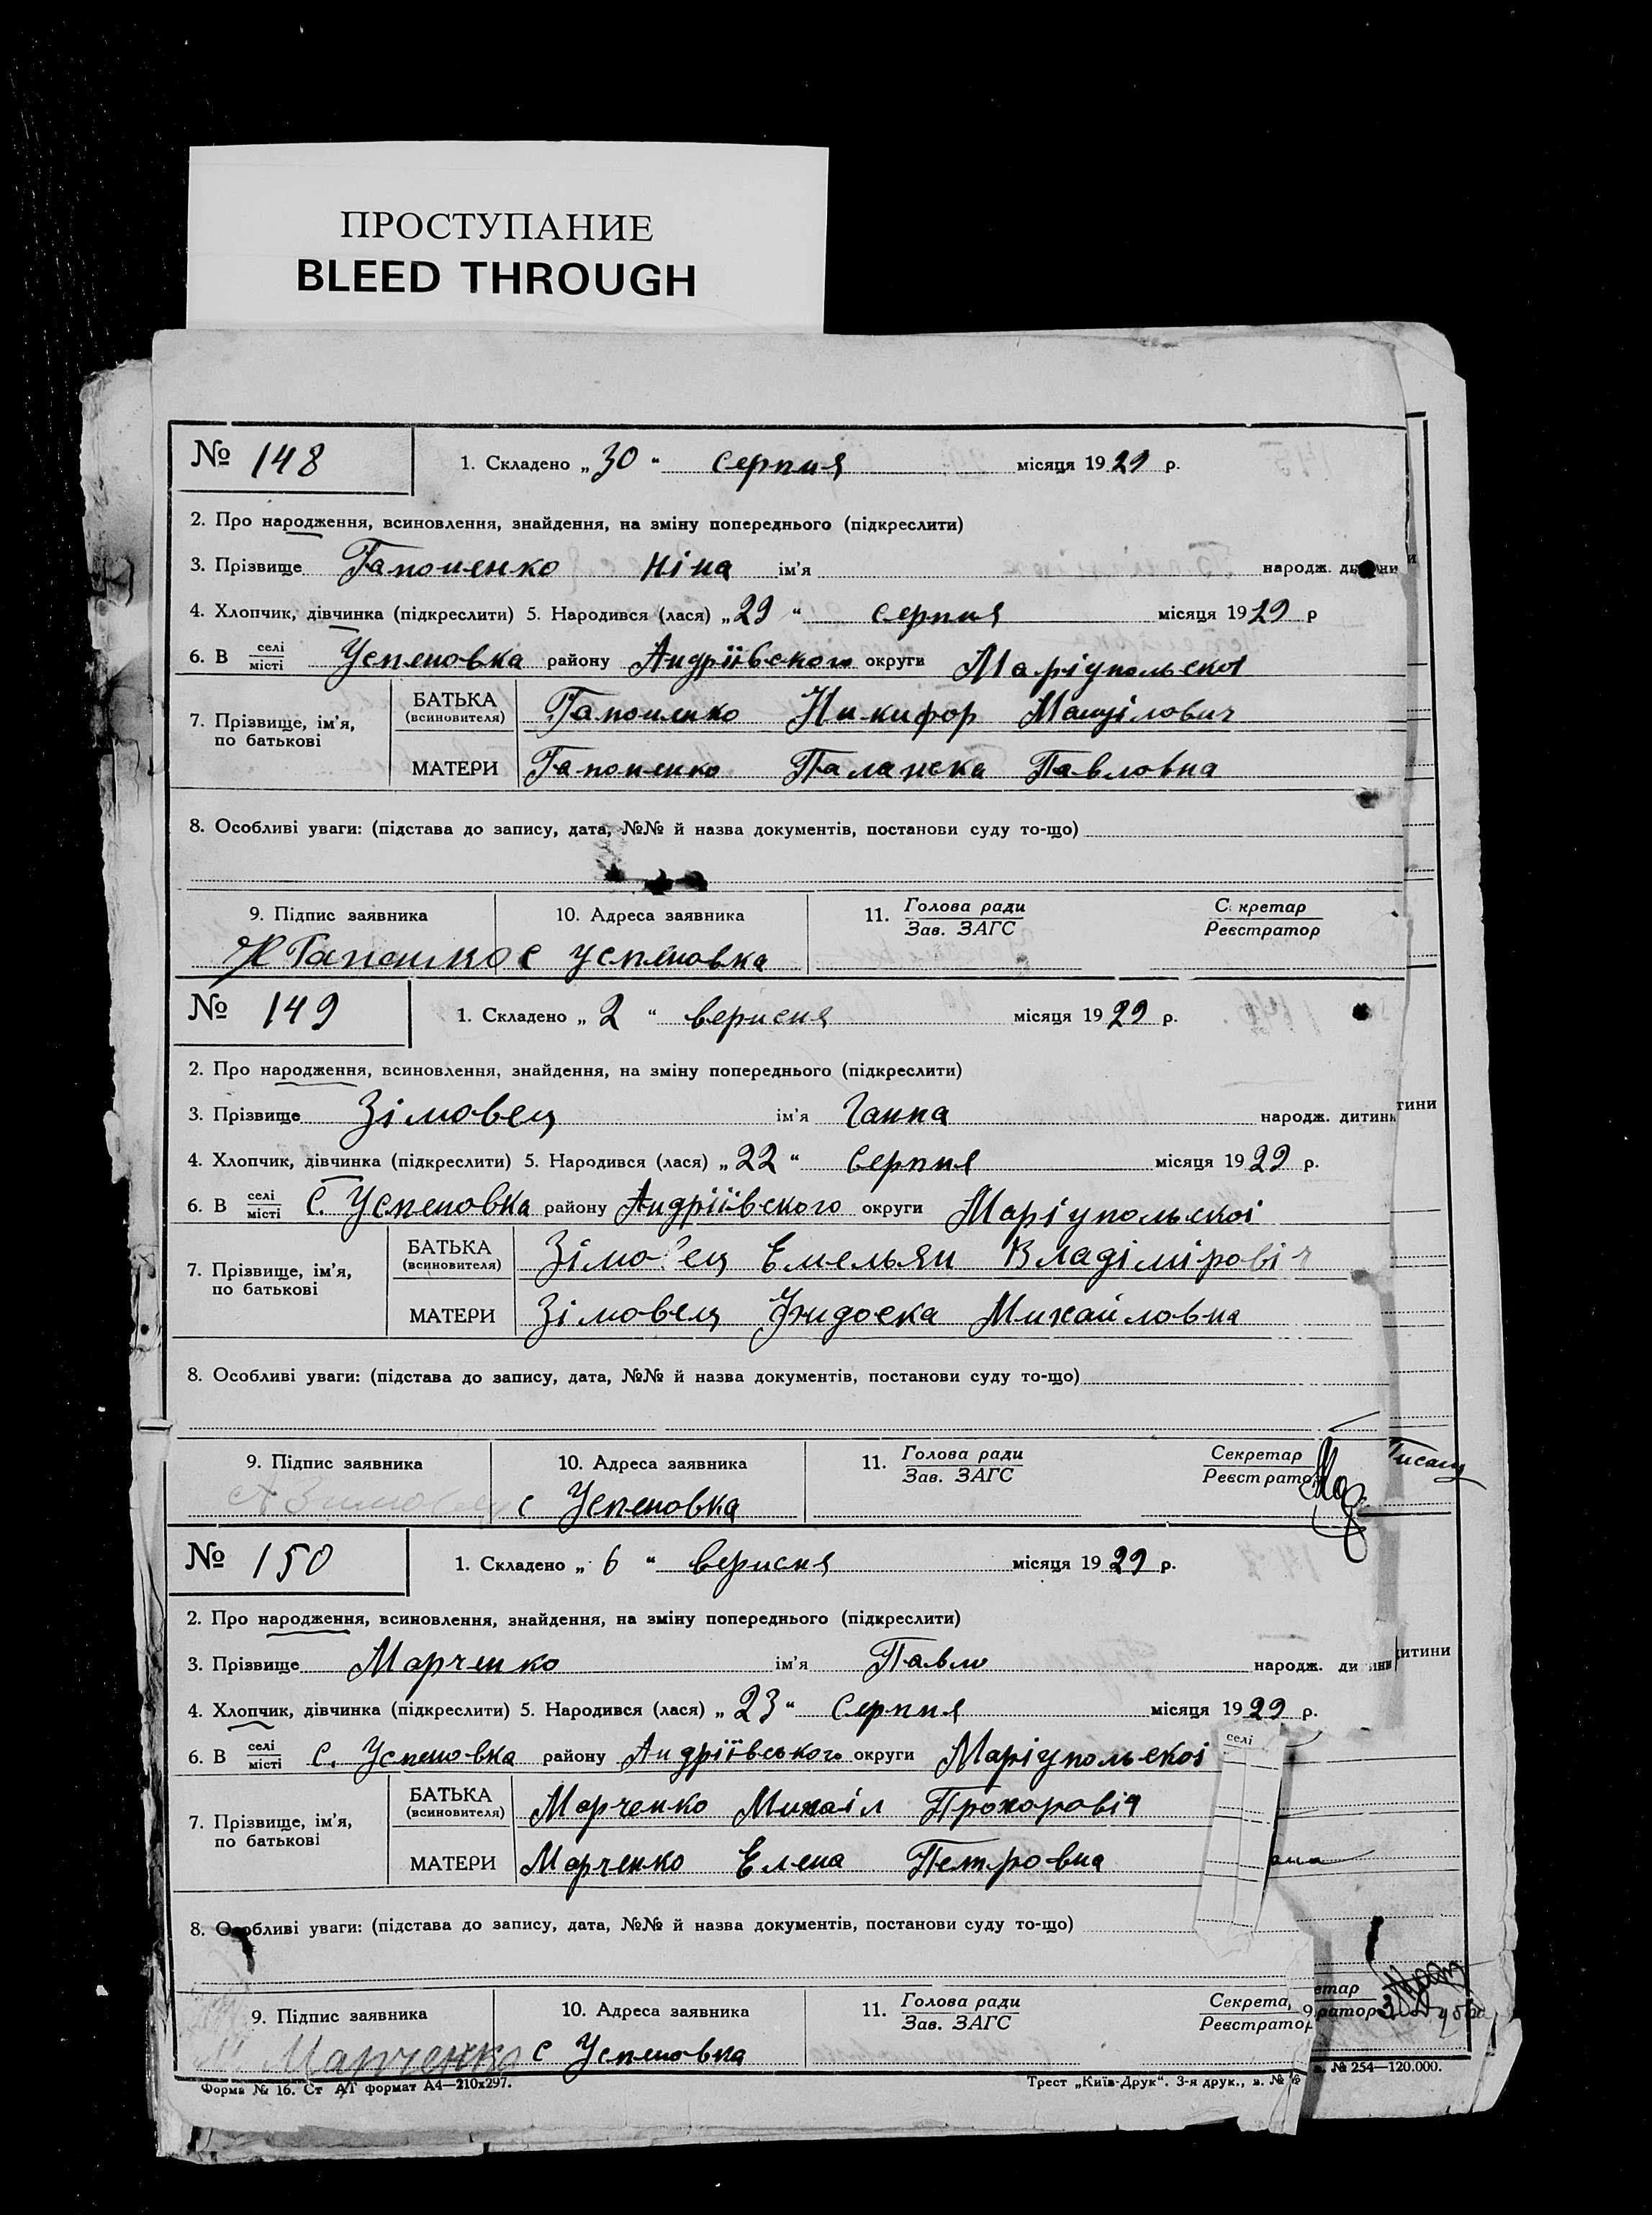 ПРОСТУПАНИЕ
BLEED THROUGH
№ 148 1. Складено „30“ серпня місяця 1929 р.
2. Про народження, всиновлення, знайдення, на зміну попереднього (підкреслити)
3. Прізвище Гапоненко Ніна ім'я народж. ди ни
4. Хлопчик, дівчинка (підкреслити) 5. Народився (лася) „29“ серпня місяця 1929 р
6. В селі/місті Успеновка району Андріївського округи Маріупольскоі
7. Прізвище, ім'я, по батькові
БАТЬКА (всиновителя) Гапоненко Никифор
МАТЕРИ Гапоненко Палажка Павловна
8. Особливі уваги: (підстава до запису, дата, №№ й назва документів, постанови суду то-що)
9. Підпис заявника 10. Адреса заявника 11. Голова ради/Зав. ЗАГС С кретар/Реєстратор
с Успеновка
№ 149 1. Складено „2“ вересня місяця 1929 р.
2. Про народження, всиновлення, знайдення, на зміну попереднього (підкреслити)
3. Прізвище Зімовец ім'я Ганна народж. дитин тини
4. Хлопчик, дівчинка (підкреслити) 5. Народився (лася) „22“ Серпня місяця 1929 р.
6. В селі/місті С. Успеновка району Андріївского округи Маріупольскоі
7. Прізвище, ім'я, по батькові
БАТЬКА (всиновителя) Зімовец Емельян Владіміровіч
МАТЕРИ Зімовец Михайловна
8. Особливі уваги: (підстава до запису, дата, №№ й назва документів, постанови суду то-що)
9. Підпис заявника 10. Адреса заявника 11. Голова ради/Зав. ЗАГС Секретар/Реєстратор
с Успеновка
№ 150 1. Складено „6“ вересня місяця 1929 р.
2. Про народження, всиновлення, знайдення, на зміну попереднього (підкреслити)
3. Прізвище Марченко ім'я Павло народж. ди ини итини
4. Хлопчик, дівчинка (підкреслити) 5. Народився (лася) „23“ Серпня місяця 1929 р.
6. В селі/місті С. Успеновка району Андріївського округи Маріупольскоі селі
7. Прізвище, ім'я, по батькові
БАТЬКА (всиновителя) Марченко Михаіл Прохоровіч
МАТЕРИ Марченко Елена Петровна
8. Особливі уваги: (підстава до запису, дата, №№ й назва документів, постанови суду то-що)
9. Підпис заявника 10. Адреса заявника 11. Голова ради/Зав. ЗАГС Секрета/Реєстратор етар/ратор
М Марченко с Успеновка
Форма № 16. Ст АТ формат А4—210х297. Трест „Київ-Друк“. 3-я друк., з. № № 254—120.000.